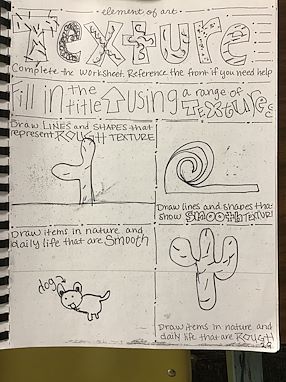 element of art
Texture
Complete the worksheet. Reference the front if you need help
Fill in the title using a range of Textures
Draw LINES and SHAPES that
represent ROUGH TEXTURE
Draw lines and shapes that
show SMOOTH TEXTURE
Draw items in nature and
daily life that are Smooth
dog
Draw items in nature and
daily life that are ROUGH